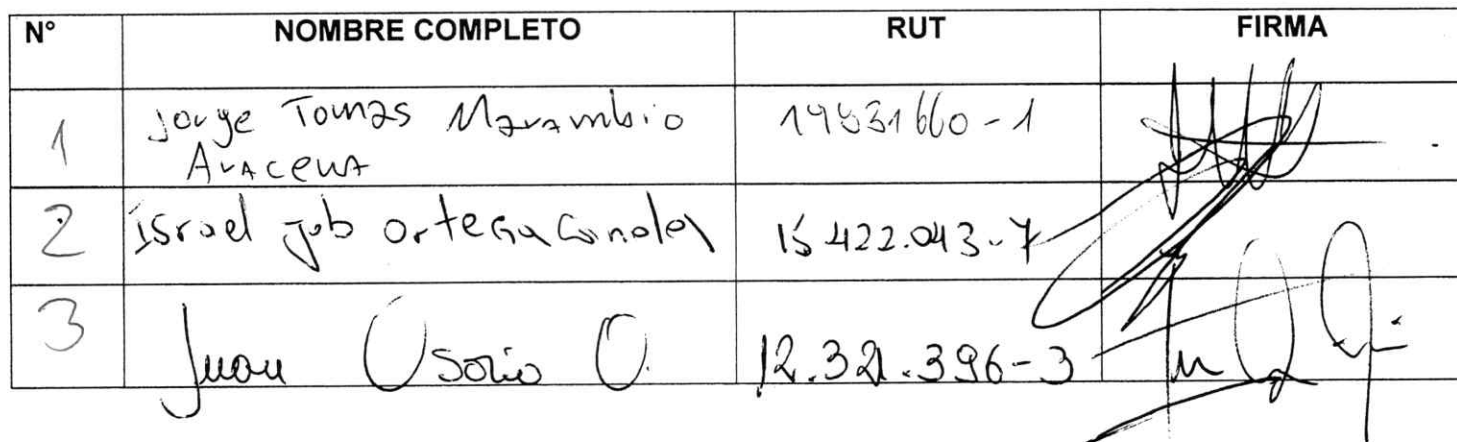 N° NOMBRE COMPLETO RUT FIRMA
1 Jorge Tomas Marambio 19831660-1
Aracena
2 israel job ortega 15.422.043-7
3 Juan Osorio O. 12.321.396-3